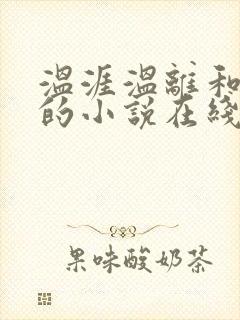 温涯温離和
的小说在綫
果味酸奶茶